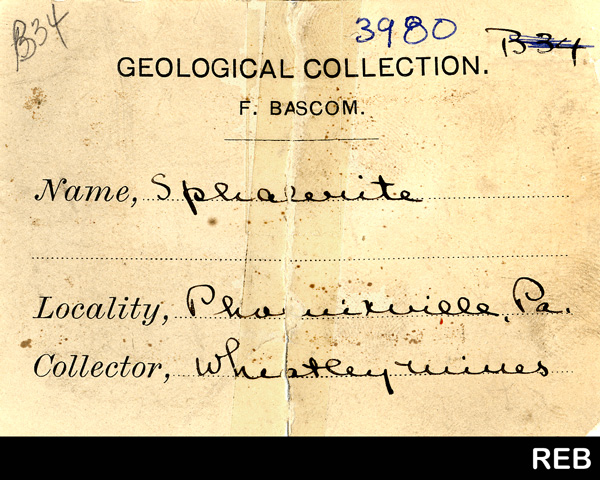 B34
3980 B34
GEOLOGICAL COLLECTION.
F. BASCOM.
Name, Sphalerite
Locality, Phoenixville, Pa.
Collector, Wheatley mines
REB